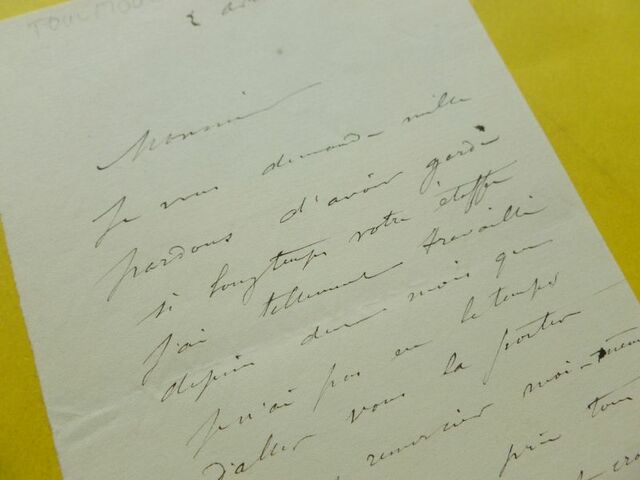 TOULMOU
2 avr
Monsieur
Je vous demande mille
pardons d'avoir gardé
si longtemps votre étoffe
J'ai tellement travaillé
depuis deux mois que
Je n'ai pas eu le temps
d'aller vous la porter
et remercier moi-même
prie